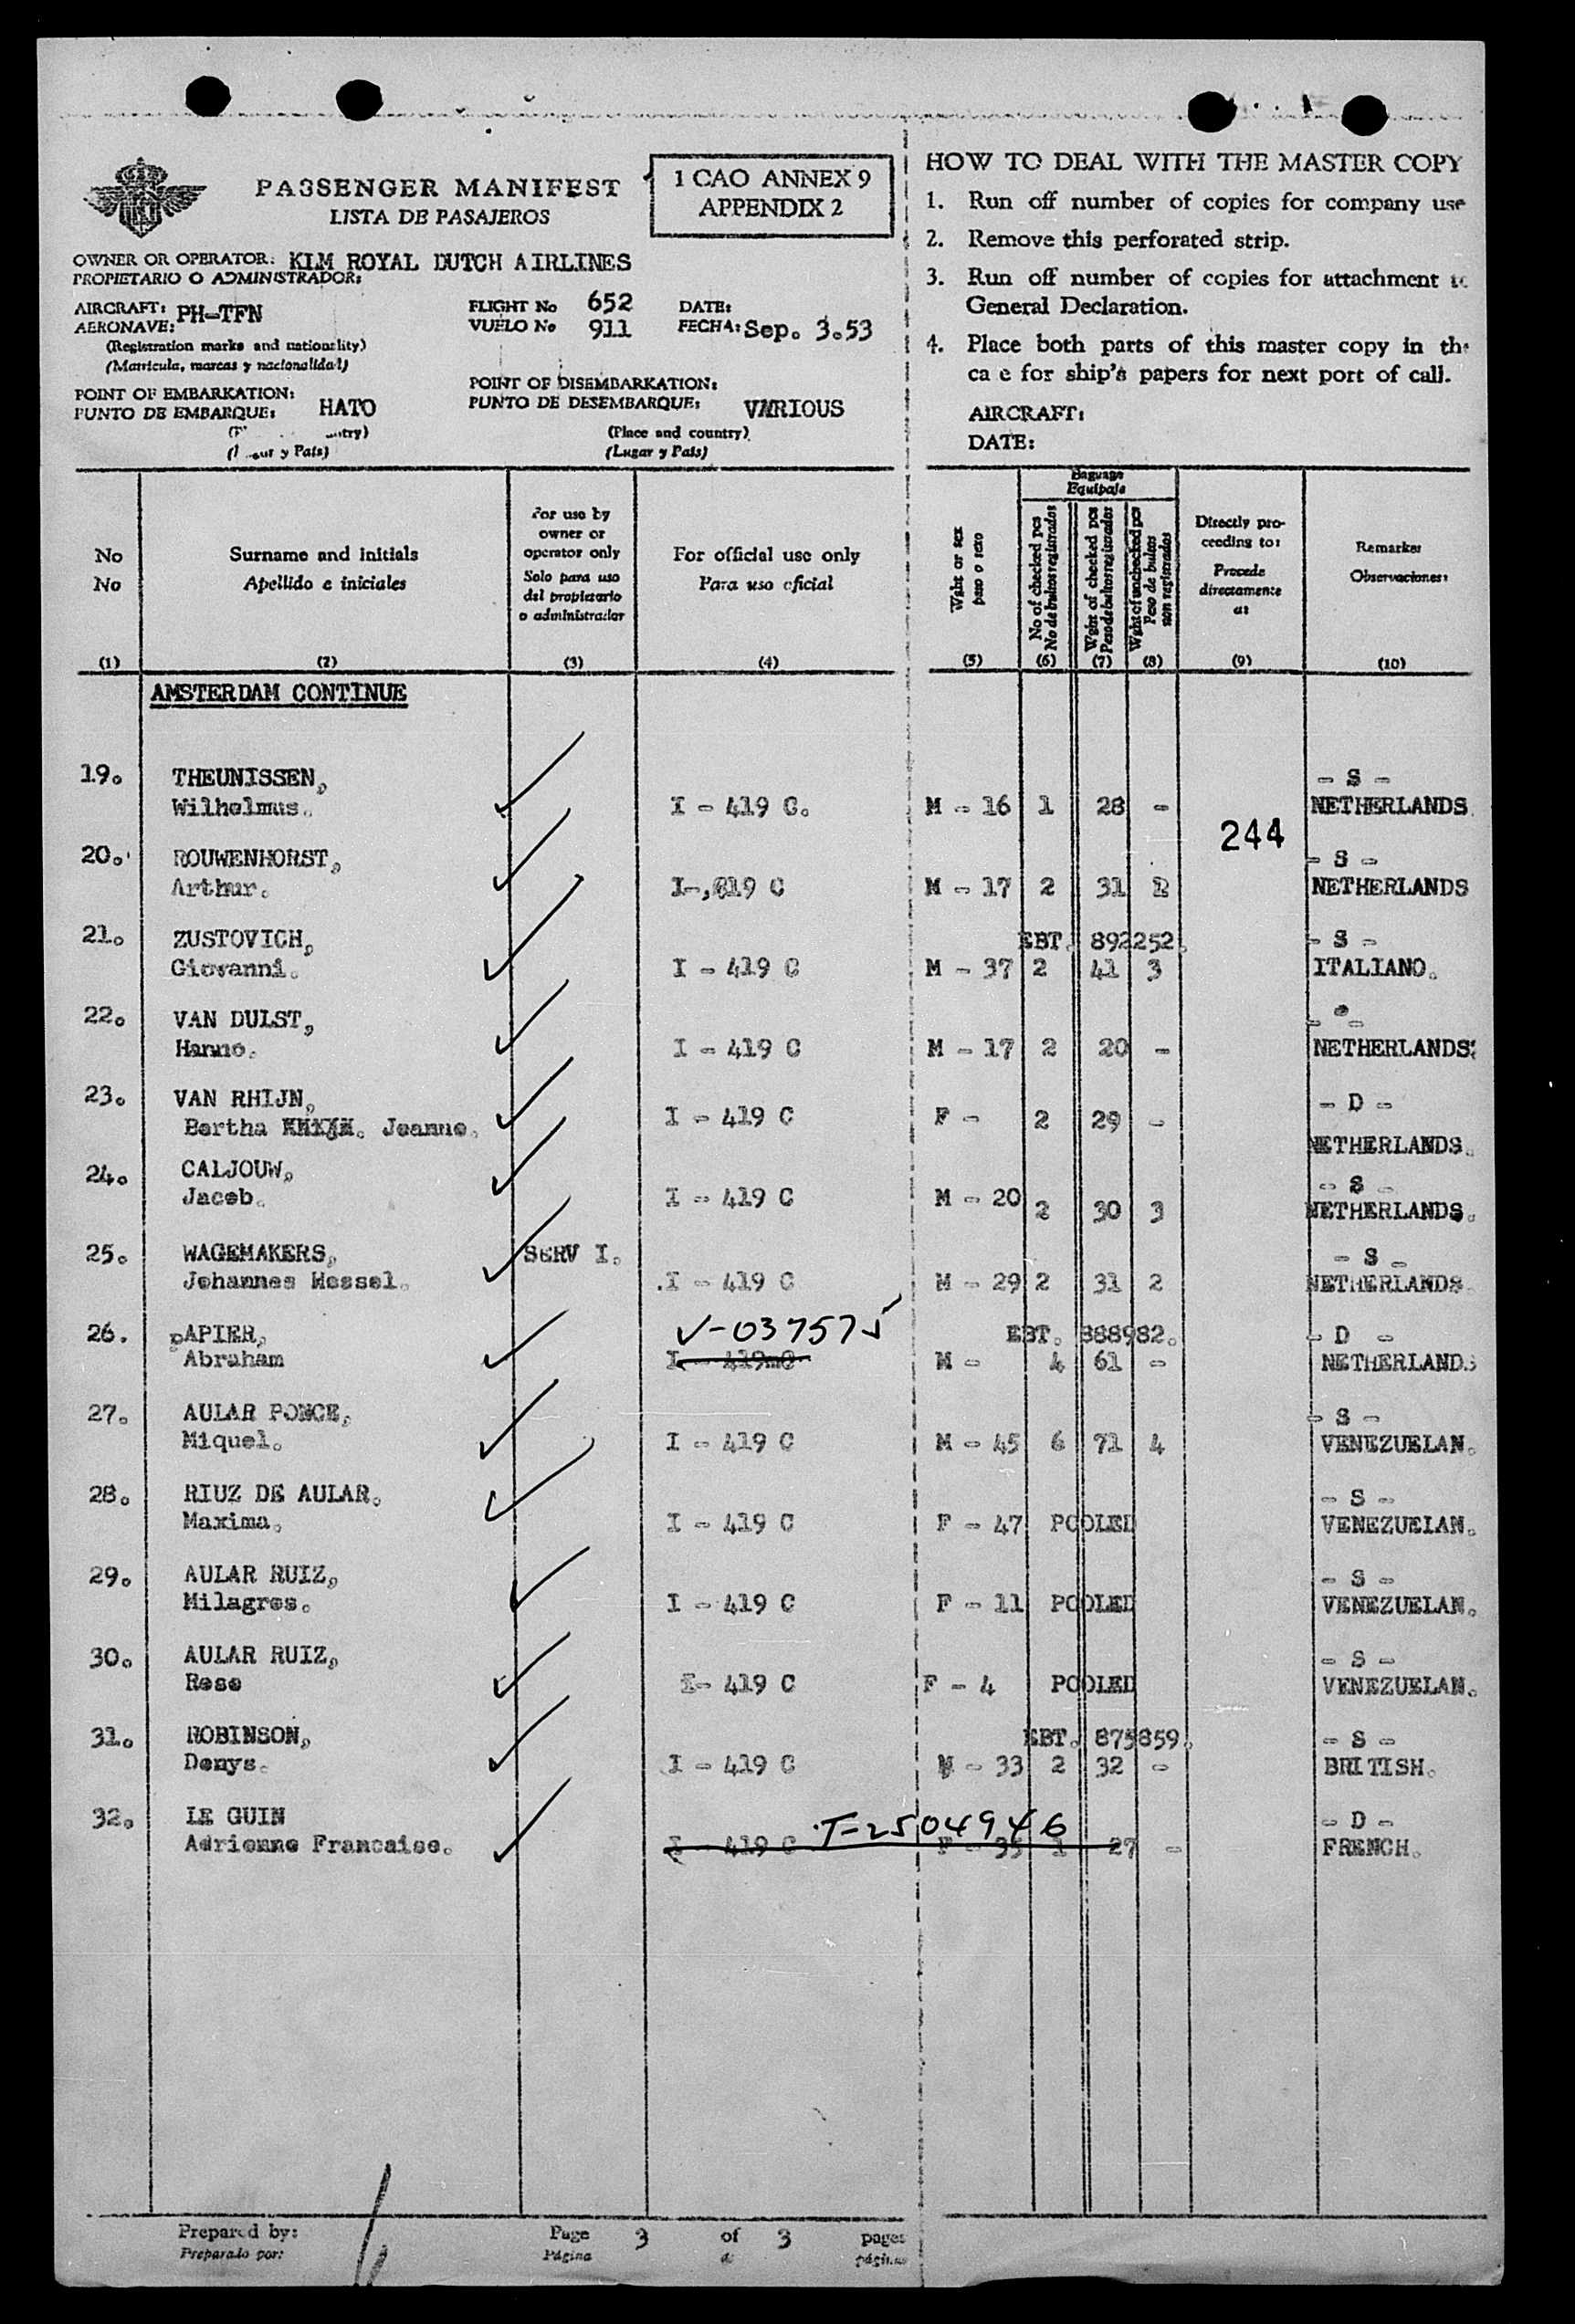 PASSENGER MANIFEST
LISTA DE PASAJEROS
1 CAO ANNEX 9
APPENDIX 2
OWNER OR OPERATOR: KLM ROYAL DUTCH AIRLINES
PROPIETARIO O ADMINISTRADOR:
AIRCRAFT: PH-TFN
AERONAVE:
(Registration marks and nationality)
(Matricula, marcas y nacionalidad)
FLIGHT No 652
VUELO No 911
DATE:
FECHA: Sep. 3.53
POINT OF EMBARKATION:
PUNTO DE EMBARQUE: HATO
(Lugar y Pais)
POINT OF DISEMBARKATION:
PUNTO DE DESEMBARQUE: VARIOUS
(Place and country)
(Lugar y Pais)
HOW TO DEAL WITH THE MASTER COPY
1. Run off number of copies for company use
2. Remove this perforated strip.
3. Run off number of copies for attachment to
General Declaration.
4. Place both parts of this master copy in the
ca e for ship's papers for next port of call.
AIRCRAFT:
DATE:
No
No
(1)
Surname and initials
Apellido e iniciales
(2)
For use by
owner or
operator only
Solo para uso
del propietario
o administrador
(3)
For official use only
Para uso oficial
(4)
Wght or sex
peso o sexo
(5)
Baguage
Equipaje
No of checked pcs
No de bultos registrados
(6)
Wght of checked pcs
Peso de bultos registrados
(7)
Wght of unchecked pcs
Peso de bultos
non registrados
(8)
Directly pro-
ceeding to:
Procede
directamente
a:
(9)
Remarks:
Observaciones:
(10)
AMSTERDAM CONTINUE
19. THEUNISSEN, - S -
Wilhelmus. I - 419 C. M - 16 1 28 - NETHERLANDS.
244
20. ROUWENHORST, - S -
Arthur. 19 C M - 17 2 31 NETHERLANDS
21. ZUSTOVICH, EBT. 892252. - S -
Giovanni. I - 419 C M - 37 2 41 3 ITALIANO.
22. VAN DULST,
Hanno. I - 419 C M - 17 2 20 - NETHERLANDS.
23. VAN RHIJN, - D -
Bertha Jeanne. I - 419 C F - 2 29 - NETHERLANDS.
24. CALJOUW, - S -
Jacob. I - 419 C M - 20 2 30 3 NETHERLANDS.
25. WAGEMAKERS, SERV I. - S -
Johannes Wessel. I - 419 C M - 29 2 31 2 NETHERLANDS.
26. PAPIER, V-037575 EBT. 888982. - D -
Abraham I - 419 C M - 4 61 - NETHERLANDS
27. AULAR PONCE, - S -
Miquel. I - 419 C M - 45 6 71 4 VENEZUELAN.
28. RIUZ DE AULAR. - S -
Maxima. I - 419 C F - 47 POOLED VENEZUELAN.
29. AULAR RUIZ, - S -
Milagros. I - 419 C F - 11 POOLED VENEZUELAN.
30. AULAR RUIZ, - S -
Rose I- 419 C F - 4 POOLED VENEZUELAN.
31. ROBINSON, EBT. 875859. - S -
Denys. I - 419 C M - 33 2 32 - BRITISH.
32. LE GUIN T-2504946 - D -
Adrienne Francaise. I - 419 C F - 35 1 27 - FRENCH.
Prepared by:
Preparado por:
Page 3 of 3 pages
Página de páginas